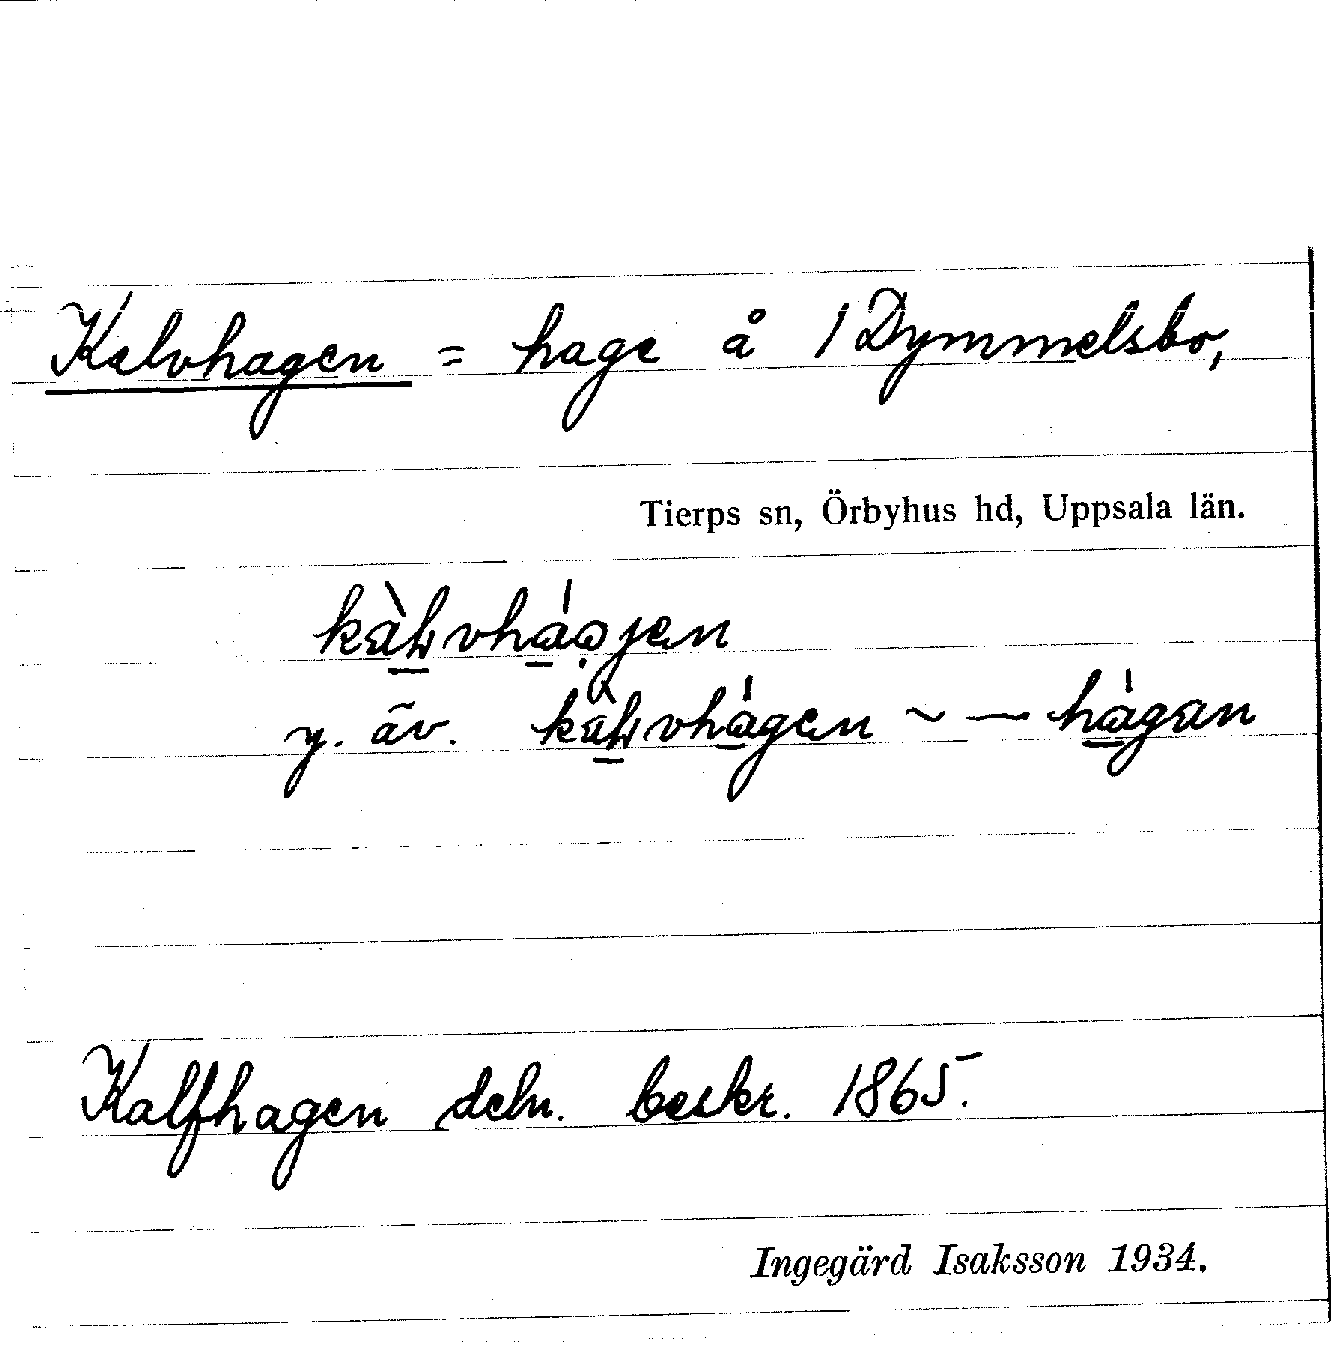 Kalvhagen = hage å 1 Dymmelsbo,
Tierps sn, Örbyhus hd, Uppsala län.
y. äv.
Kalfhagen deln. beskr. 1865.
Ingegärd Isaksson 1934.